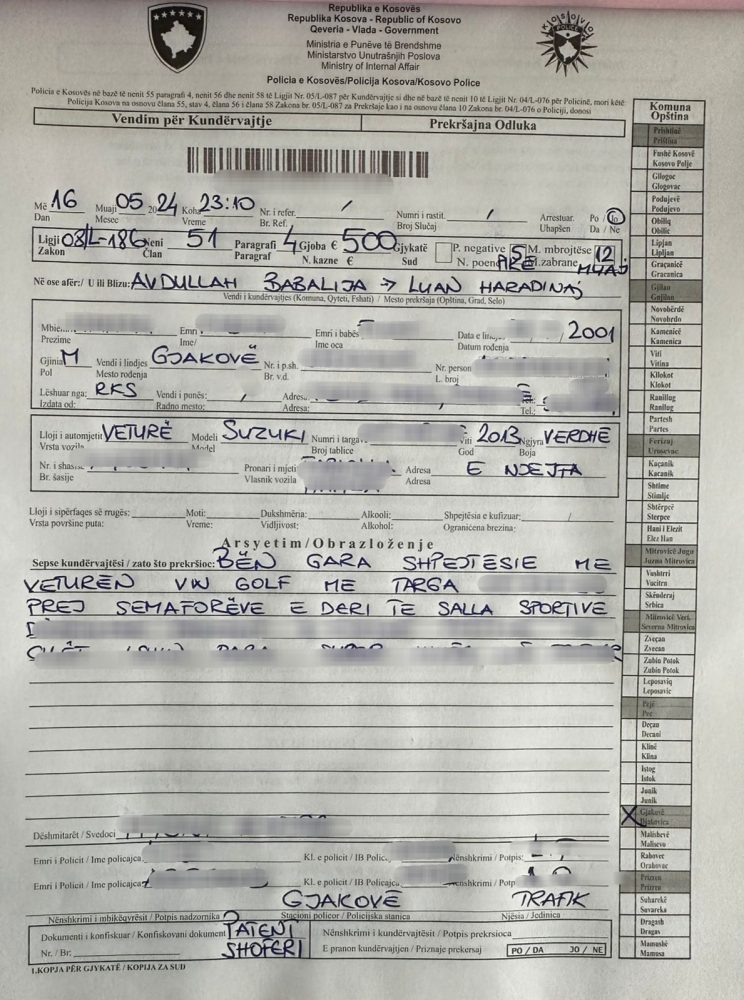 Republika e Kosovës
Republika Kosova - Republic of Kosovo
Qeveria - Vlada - Government
Ministria e Punëve të Brendshme
Ministarstvo Unutrašnjih Poslova
Ministry of Internal Affair
Policia e Kosovës/Policija Kosova/Kosovo Police
KOSOVO
POLICE
Policia e Kosovës në bazë të nenit 55 paragrafi 4, nenit 56 dhe nenit 58 të Ligjit Nr. 05/L-087 për Kundërvajtje si dhe në bazë të nenit 10 të Ligjit Nr. 04/L-076 për Policinë, mori këtë
Policija Kosova na osnovu člana 55, stav 4, člana 56 i člana 58 Zakona br. 05/L-087 za Prekršaje kao i na osnovu člana 10 Zakona br. 04/L-076 o Policiji, donosi
Vendim për Kundërvajtje Prekršajna Odluka
Më 16 Muaji 05 2024 Koha 23:10 Nr. i refer. / Numri i rastit. / Arrestuar. Po / Jo
Dan Mesec Vreme Br. Ref. Broj Slučaj Uhapšen Da / Ne
Ligji 08/L-186 Neni 51 Paragrafi 4 Gjoba € 500 Gjykatë P. negative 5 M. mbrojtëse 12
Zakon Član Paragraf N. kazne € Sud N. poena PIKË M.zabrane MUAJ
Në ose afër:/ U ili Blizu: AVDULLAH BABALIJA → LUAN HARADINAJ
Vendi i kundërvajtjes (Komuna, Qyteti, Fshati) / Mesto prekršaja (Opština, Grad, Selo)
Mbie Emri Emri i babës Data e 2001
Prezime Ime/ Ime oca Datum rođenja
Gjinia M Vendi i lindjes GJAKOVË Nr. i p.sh. Nr. person
Pol Mesto rođenja Br. v.d. L. broj
Lëshuar nga: RKS Vendi i punës: / Adresa:
Izdata od: Radno mesto: Adresa: Tel.:
Lloji i automjetit VETURË Modeli SUZUKI Numri i targa Viti 2013 Ngjyra VERDHË
Vrsta vozila Model Broj tablice God Boja
Nr. i shasi Pronari i mjeti Adresa E NJEJTA
Br. šasije Vlasnik vozila Adresa
Lloji i sipërfaqes së rrugës: / Moti: / Dukshmëria: / Alkooli: / Shpejtësia e kufizuar: /
Vrsta površine puta: Vreme: Vidljivost: Alkohol: Ograničena brezina:
Arsyetim/Obrazloženje
Sepse kundërvajtësi / zato što prekršioc: BËN GARA SHPEJTËSIE ME
VETURËN VW GOLF ME TARGA
PREJ SEMAFORËVE E DERI TE SALLA SPORTIVE
Dëshmitarët / Svedoci
Emri i Policit / Ime policajca Kl. e policit / IB Polic. Nënshkrimi / Potpis:
Emri i Policit / Ime policajca Kl. e policit / IB Policajca Nënshkrimi / Potp
GJAKOVË TRAFIK
Nënshkrimi i mbikëqyrësit / Potpis nadzornika Stacioni policor / Policijska stanica Njësia / Jedinica
Dokumenti i konfiskuar / Konfiskovani dokument PATENT Nënshkrimi i kundërvajtësit / Potpis prekrsioca
Nr. / Br: SHOFERI E pranon kundërvajtjen / Priznaje prekersaj PO / DA JO / NE
1.KOPJA PËR GJYKATË / KOPIJA ZA SUD
Komuna
Opština
Prishtinë
Priština
Fushë Kosovë
Kosovo Polje
Gllogoc
Glogovac
Podujevë
Podujevo
Obiliq
Obilic
Lipjan
Lipljan
Graçanicë
Gracanica
Gjilan
Gnjilan
Novobërdë
Novobrdo
Kamenicë
Kamenica
Viti
Vitina
Kllokot
Klokot
Ranillug
Ranilug
Partesh
Partes
Ferizaj
Urosevac
Kaçanik
Kacanik
Shtime
Stimlje
Shtërpcë
Sterpce
Hani i Elezit
Elez Han
Mitrovicë Jugu
Juzna Mitrovica
Vushtrri
Vucitrn
Skënderaj
Srbica
Mitrovicë Veri.
Severna Mitrovica
Zveçan
Zvecan
Zubin Potok
Zubin Potok
Leposaviq
Leposavic
Pejë
Pec
Deçan
Decani
Klinë
Klina
Istog
Istok
Junik
Junik
X Gjakovë
Djakovica
Malishevë
Malisevo
Rahovec
Orahovac
Prizren
Prizren
Suharekë
Suvareka
Dragash
Dragas
Mamushë
Mamusa